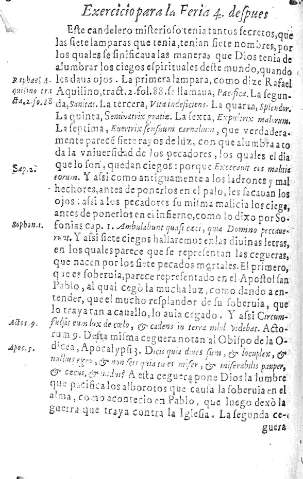 Exercicio para la Feria 4. despues
Este candelero misterioso tenia tantos secretos, que
las siete lamparas que tenia, tenian siete nombres, por
los quales se sinificaua las maneras que Dios tenia de
alumbrar los ciegos espirituales deste mundo, quando
les daua ojos. La primera lampara, como dize Rafael
Aquilino, tract. 2. fol. 88. se llamaua, Pacifica. La segun-
da, Sanitas. La tercera, Vita indeficiens. La quarta, Splendor.
La quinta, Seminatrix gratiæ. La sexta, Expultrix malorum.
La septima, sensuum carnalium, que verdadera-
mente parecē siete rayos de luz, con que alumbra a to
da la vniuersidad de los pecadores, los quales el dia
que lo son, quedan ciegos: porque Excæcauit eos malitia
eorum. Y assi como antiguamente a los ladrones y mal
hechores, antes de ponerlos en el palo, les sacauan los
ojos: assi a los pecadores su misma malicia los ciega,
antes de ponerlos en el infierno, como lo dixo por So-
fonias cap. 1. Ambulabunt quasi cæci, quia Domino peccaue-
runt. Y assi siete ciegos hallaremos en las diuinas letras,
en los quales parece que se representan las cegueras,
que nacen por los siete pecados mortales. El primero,
que es soberuia, parece representado en el Apostol san
Pablo, al qual cegò la mucha luz, como dando a en-
tender, que el mucho resplandor de su soberuia, que
lo traya tan a cauallo, lo auia cegado. Y assi Circum-
fulsit eum lux de cœlo, & cadens in terra nihil videbat. Acto-
rum 9. Desta misma ceguera notan al Obispo de la O-
dicea, Apocalypsi 3. Dicis quia diues sum, & locuplex, &
nullius egeo, & non scis quia tu es miser, & miserabilis pauper,
& cæcus, & nudus? A esta ceguera pone Dios la lumbre
que pacifica los alborotos que causa la soberuia en el
alma, como acontecio en Pablo, que luego dexò la
guerra que traya contra la Iglesia. La segunda ce-
guera
Raphael A-
quilino tra
cta. 2. fo. 88
Sap. 2.
Sophon. 1.
Actor. 9.
Apoc. 3.